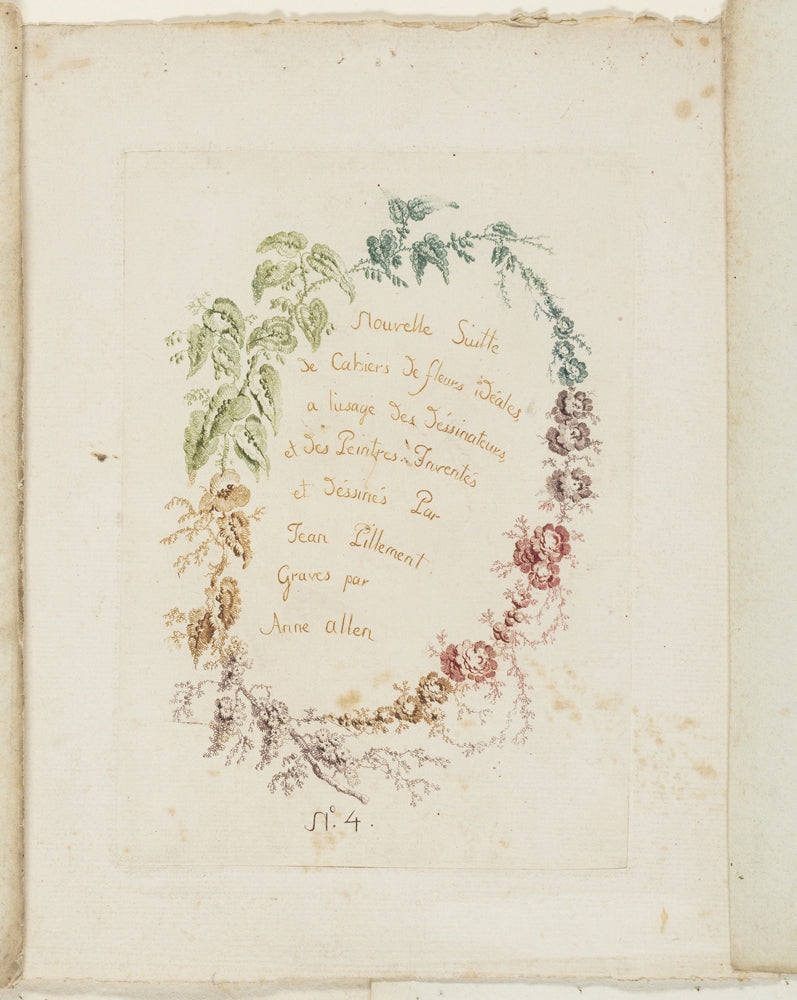 Nouvelle Suitte
de Cahiers de fleurs idéales,
a l'usage des déssinateurs,
et des Peintres. Inventés
et déssinés Par
Jean Pillement.
Graves par
Anne allen
N.º 4.